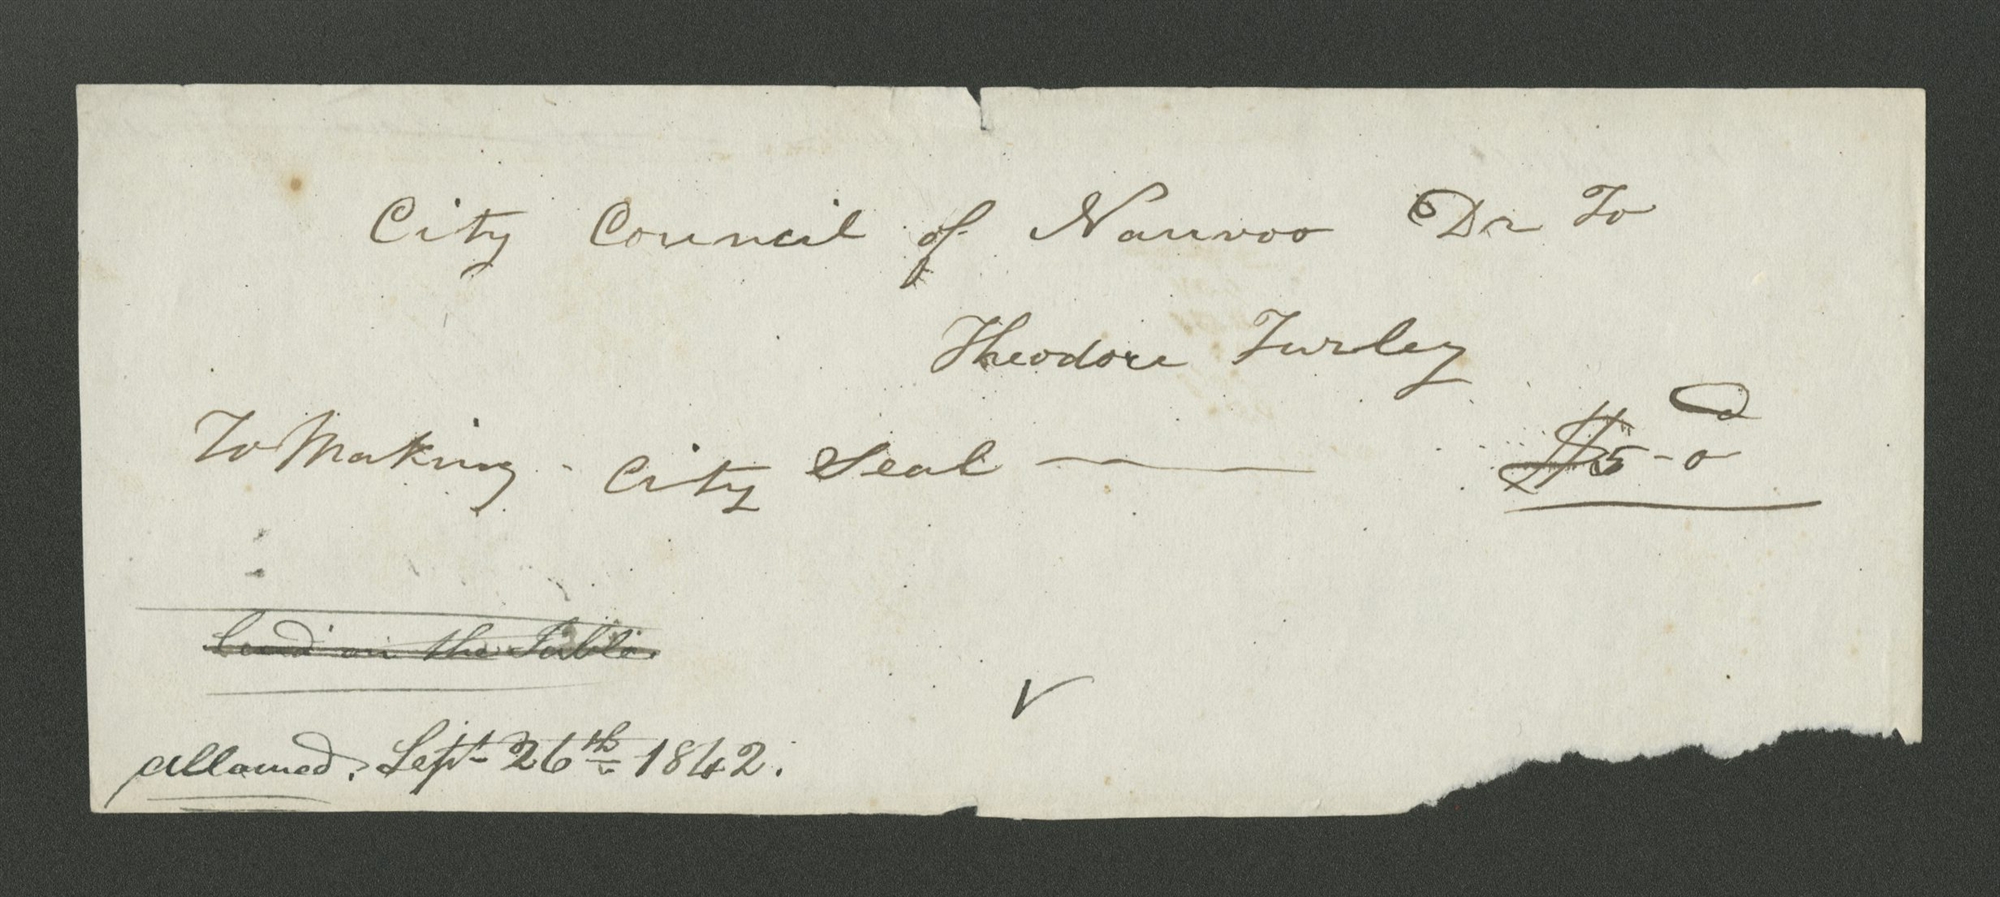 City Council of Nauvoo Dr To
Theodore Turley
To Making City Seal — $5-0
on the Table.
allowed. Sept 26th 1842.